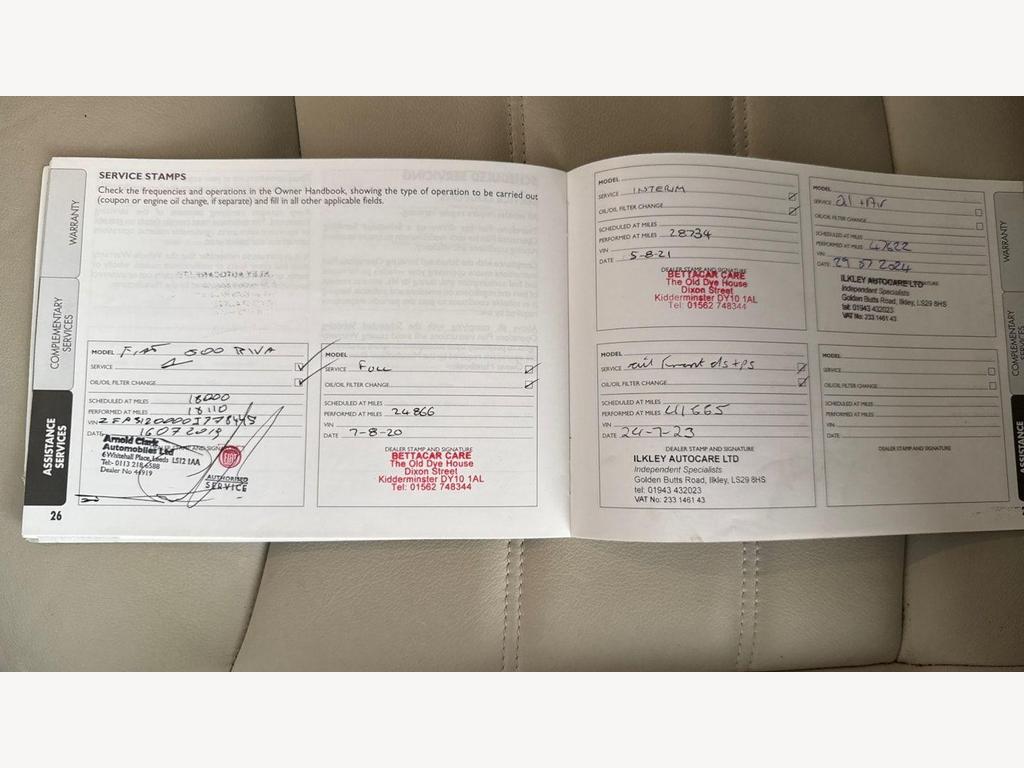 SERVICE STAMPS
Check the frequencies and operations in the Owner Handbook, showing the type of operation to be carried out
(coupon or engine oil change, if separate) and fill in all other applicable fields.
WARRANTY
COMPLEMENTARY
SERVICES
ASSISTANCE
SERVICES
26
MODEL FIAT 500 RIVA
SERVICE
OIL/OIL FILTER CHANGE
SCHEDULED AT MILES 18000
PERFORMED AT MILES 18110
VIN
DATE 16 07 2019
DEALER STAMP AND SIGNATURE
Arnold Clark
Automobiles Ltd
6 Whitehall Place, Leeds LS12 1AA
Tel:- 0113 218 6588
Dealer No 44919
FIAT
AUTHORISED
SERVICE
MODEL
SERVICE FULL
OIL/OIL FILTER CHANGE
SCHEDULED AT MILES
PERFORMED AT MILES 24866
VIN
DATE 7-8-20
DEALER STAMP AND SIGNATURE
BETTACAR CARE
The Old Dye House
Dixon Street
Kidderminster DY10 1AL
Tel: 01562 748344
MODEL
SERVICE INTERIM
OIL/OIL FILTER CHANGE
SCHEDULED AT MILES
PERFORMED AT MILES 28734
VIN
DATE 5-8-21
DEALER STAMP AND SIGNATURE
BETTACAR CARE
The Old Dye House
Dixon Street
Kidderminster DY10 1AL
Tel: 01562 748344
MODEL
SERVICE Oil + Air
OIL/OIL FILTER CHANGE
SCHEDULED AT MILES
PERFORMED AT MILES 47622
VIN
DATE 29 07 2024
ILKLEY AUTOCARE LTD
Independent Specialists
Golden Butts Road, Ilkley, LS29 8HS
tel: 01943 432023
VAT No: 233 1461 43
MODEL
SERVICE oil front ds+ps
OIL/OIL FILTER CHANGE
SCHEDULED AT MILES
PERFORMED AT MILES 41565
VIN
DATE 24-7-23
DEALER STAMP AND SIGNATURE
ILKLEY AUTOCARE LTD
Independent Specialists
Golden Butts Road, Ilkley, LS29 8HS
tel: 01943 432023
VAT No: 233 1461 43
MODEL
SERVICE
OIL/OIL FILTER CHANGE
SCHEDULED AT MILES
PERFORMED AT MILES
VIN
DATE
DEALER STAMP AND SIGNATURE
WARRANTY
COMPLEMENTARY